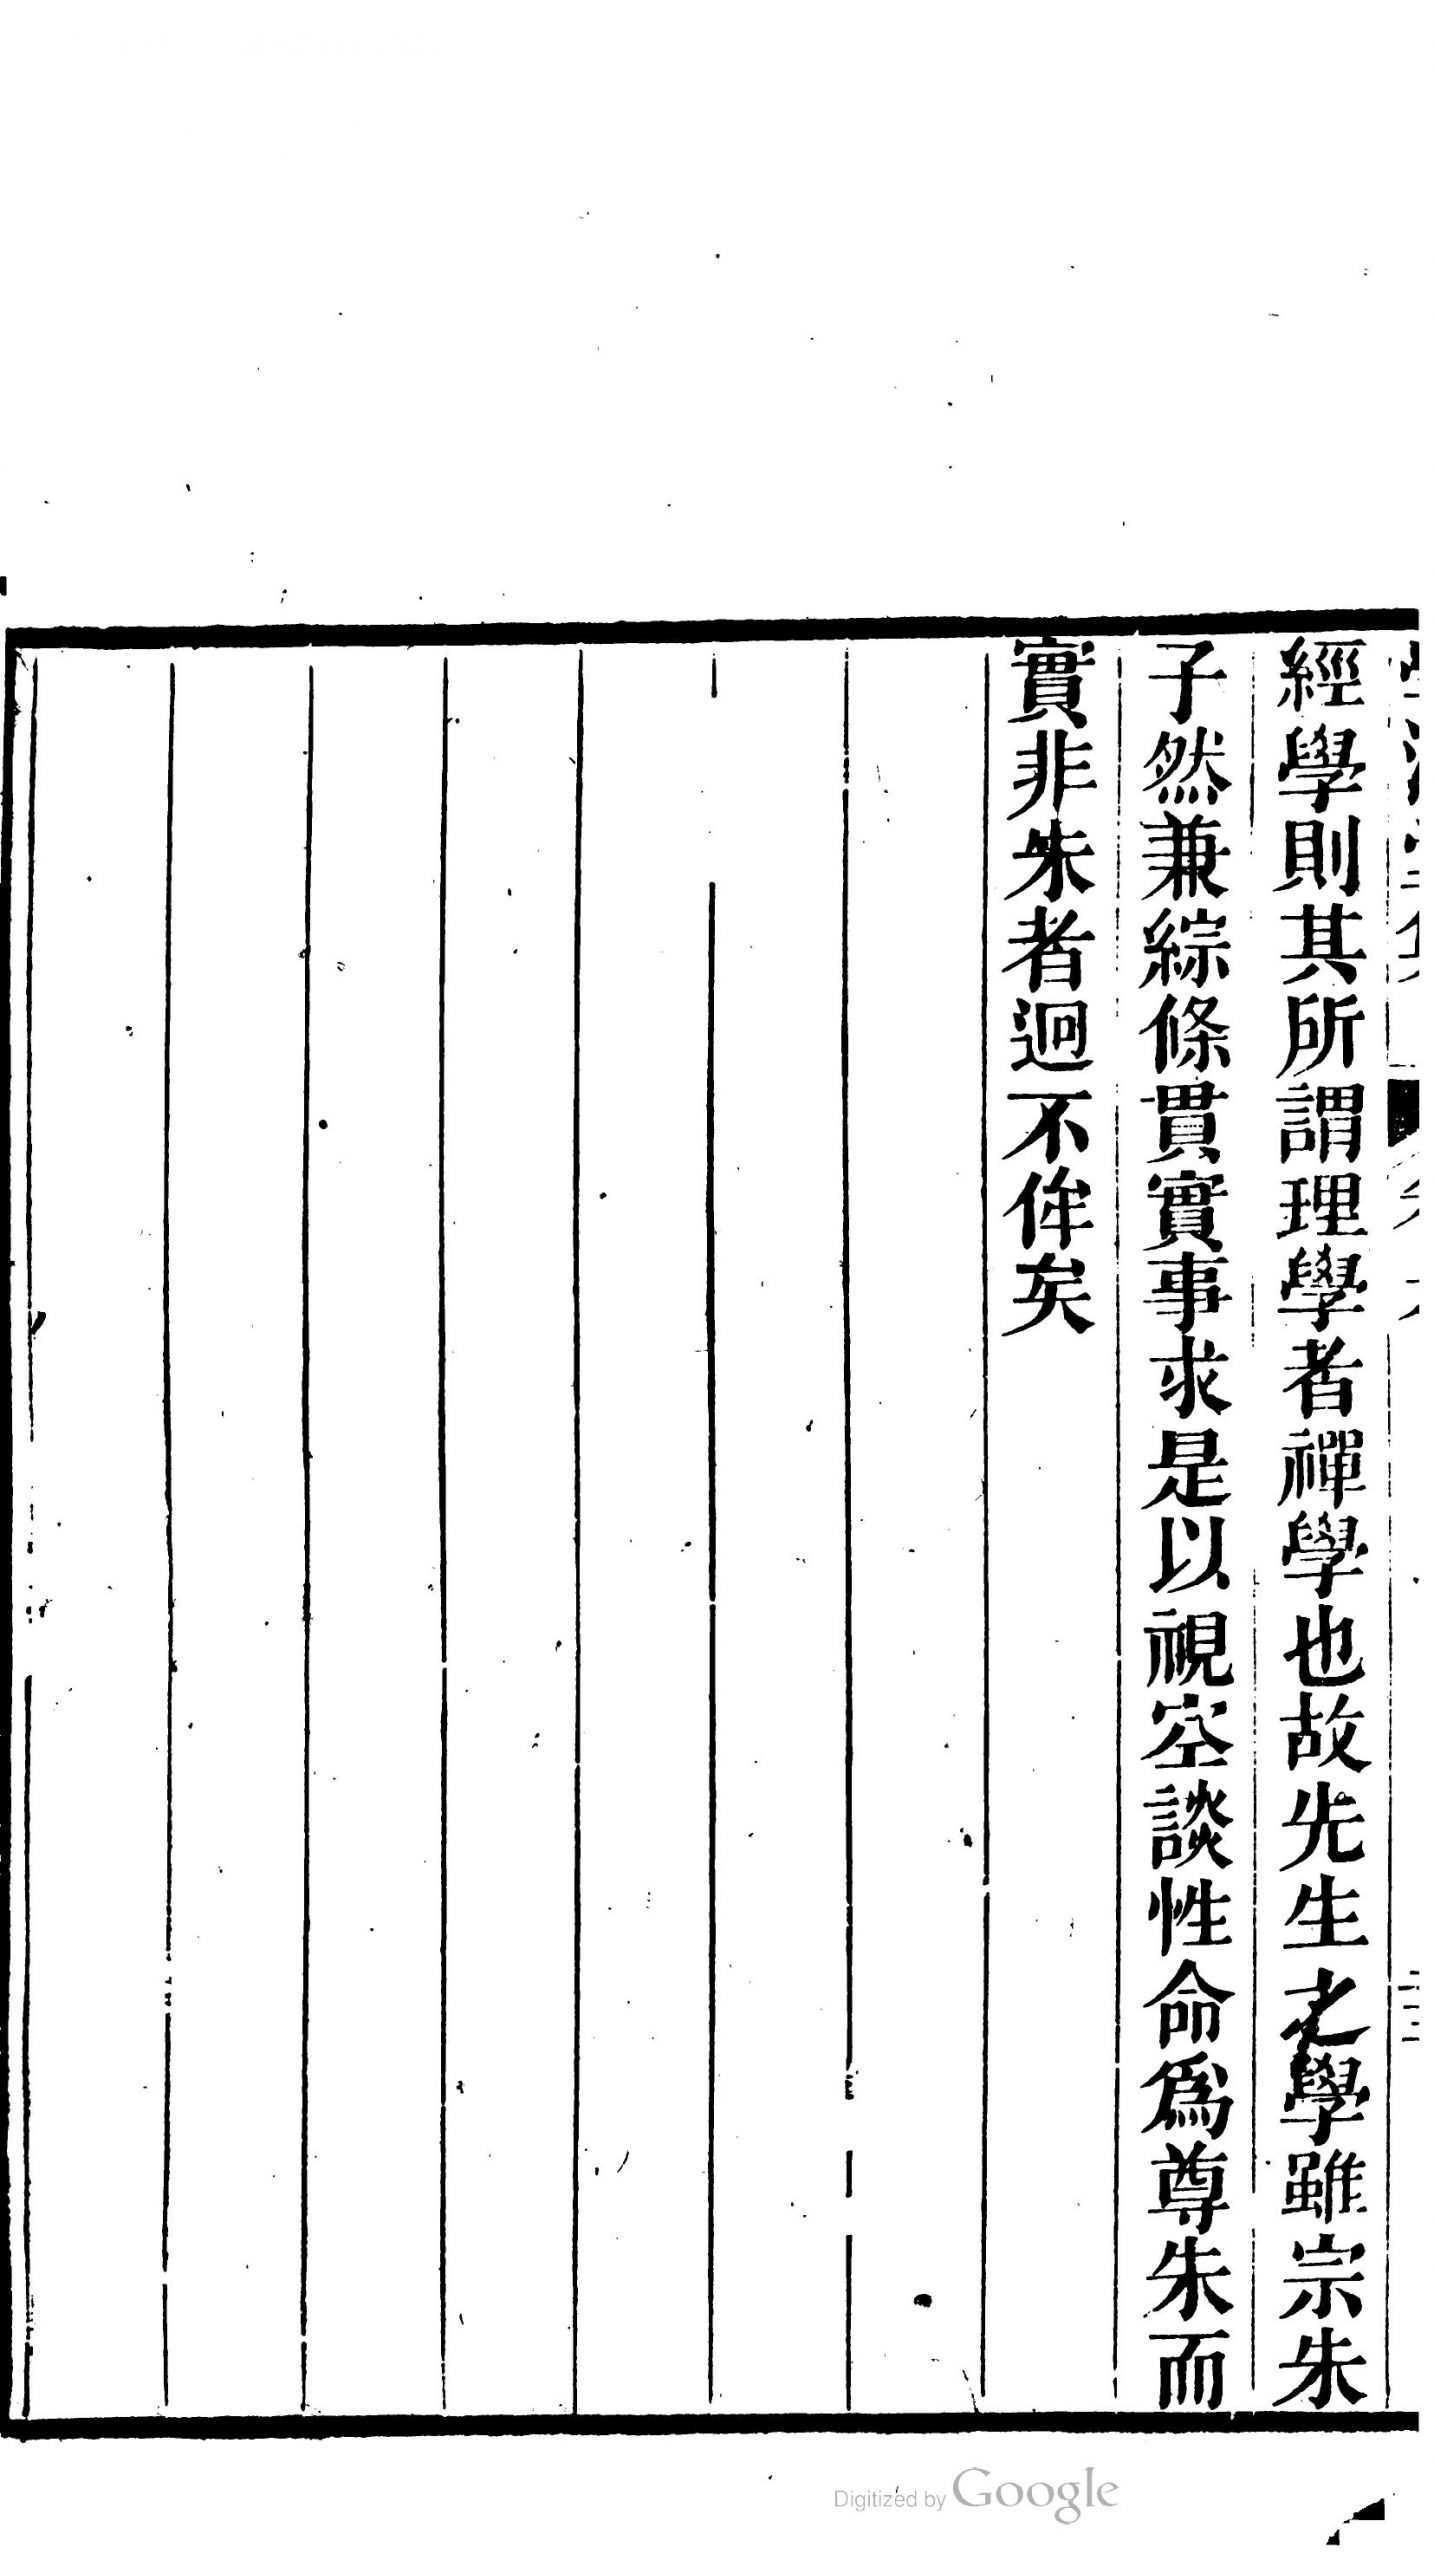 經學則其所謂理學者禪學也故先生之學雖宗朱
子然兼綜條貫實事求是以視空談性命爲尊朱而
實非朱者迥不侔矣
Digitized by Google